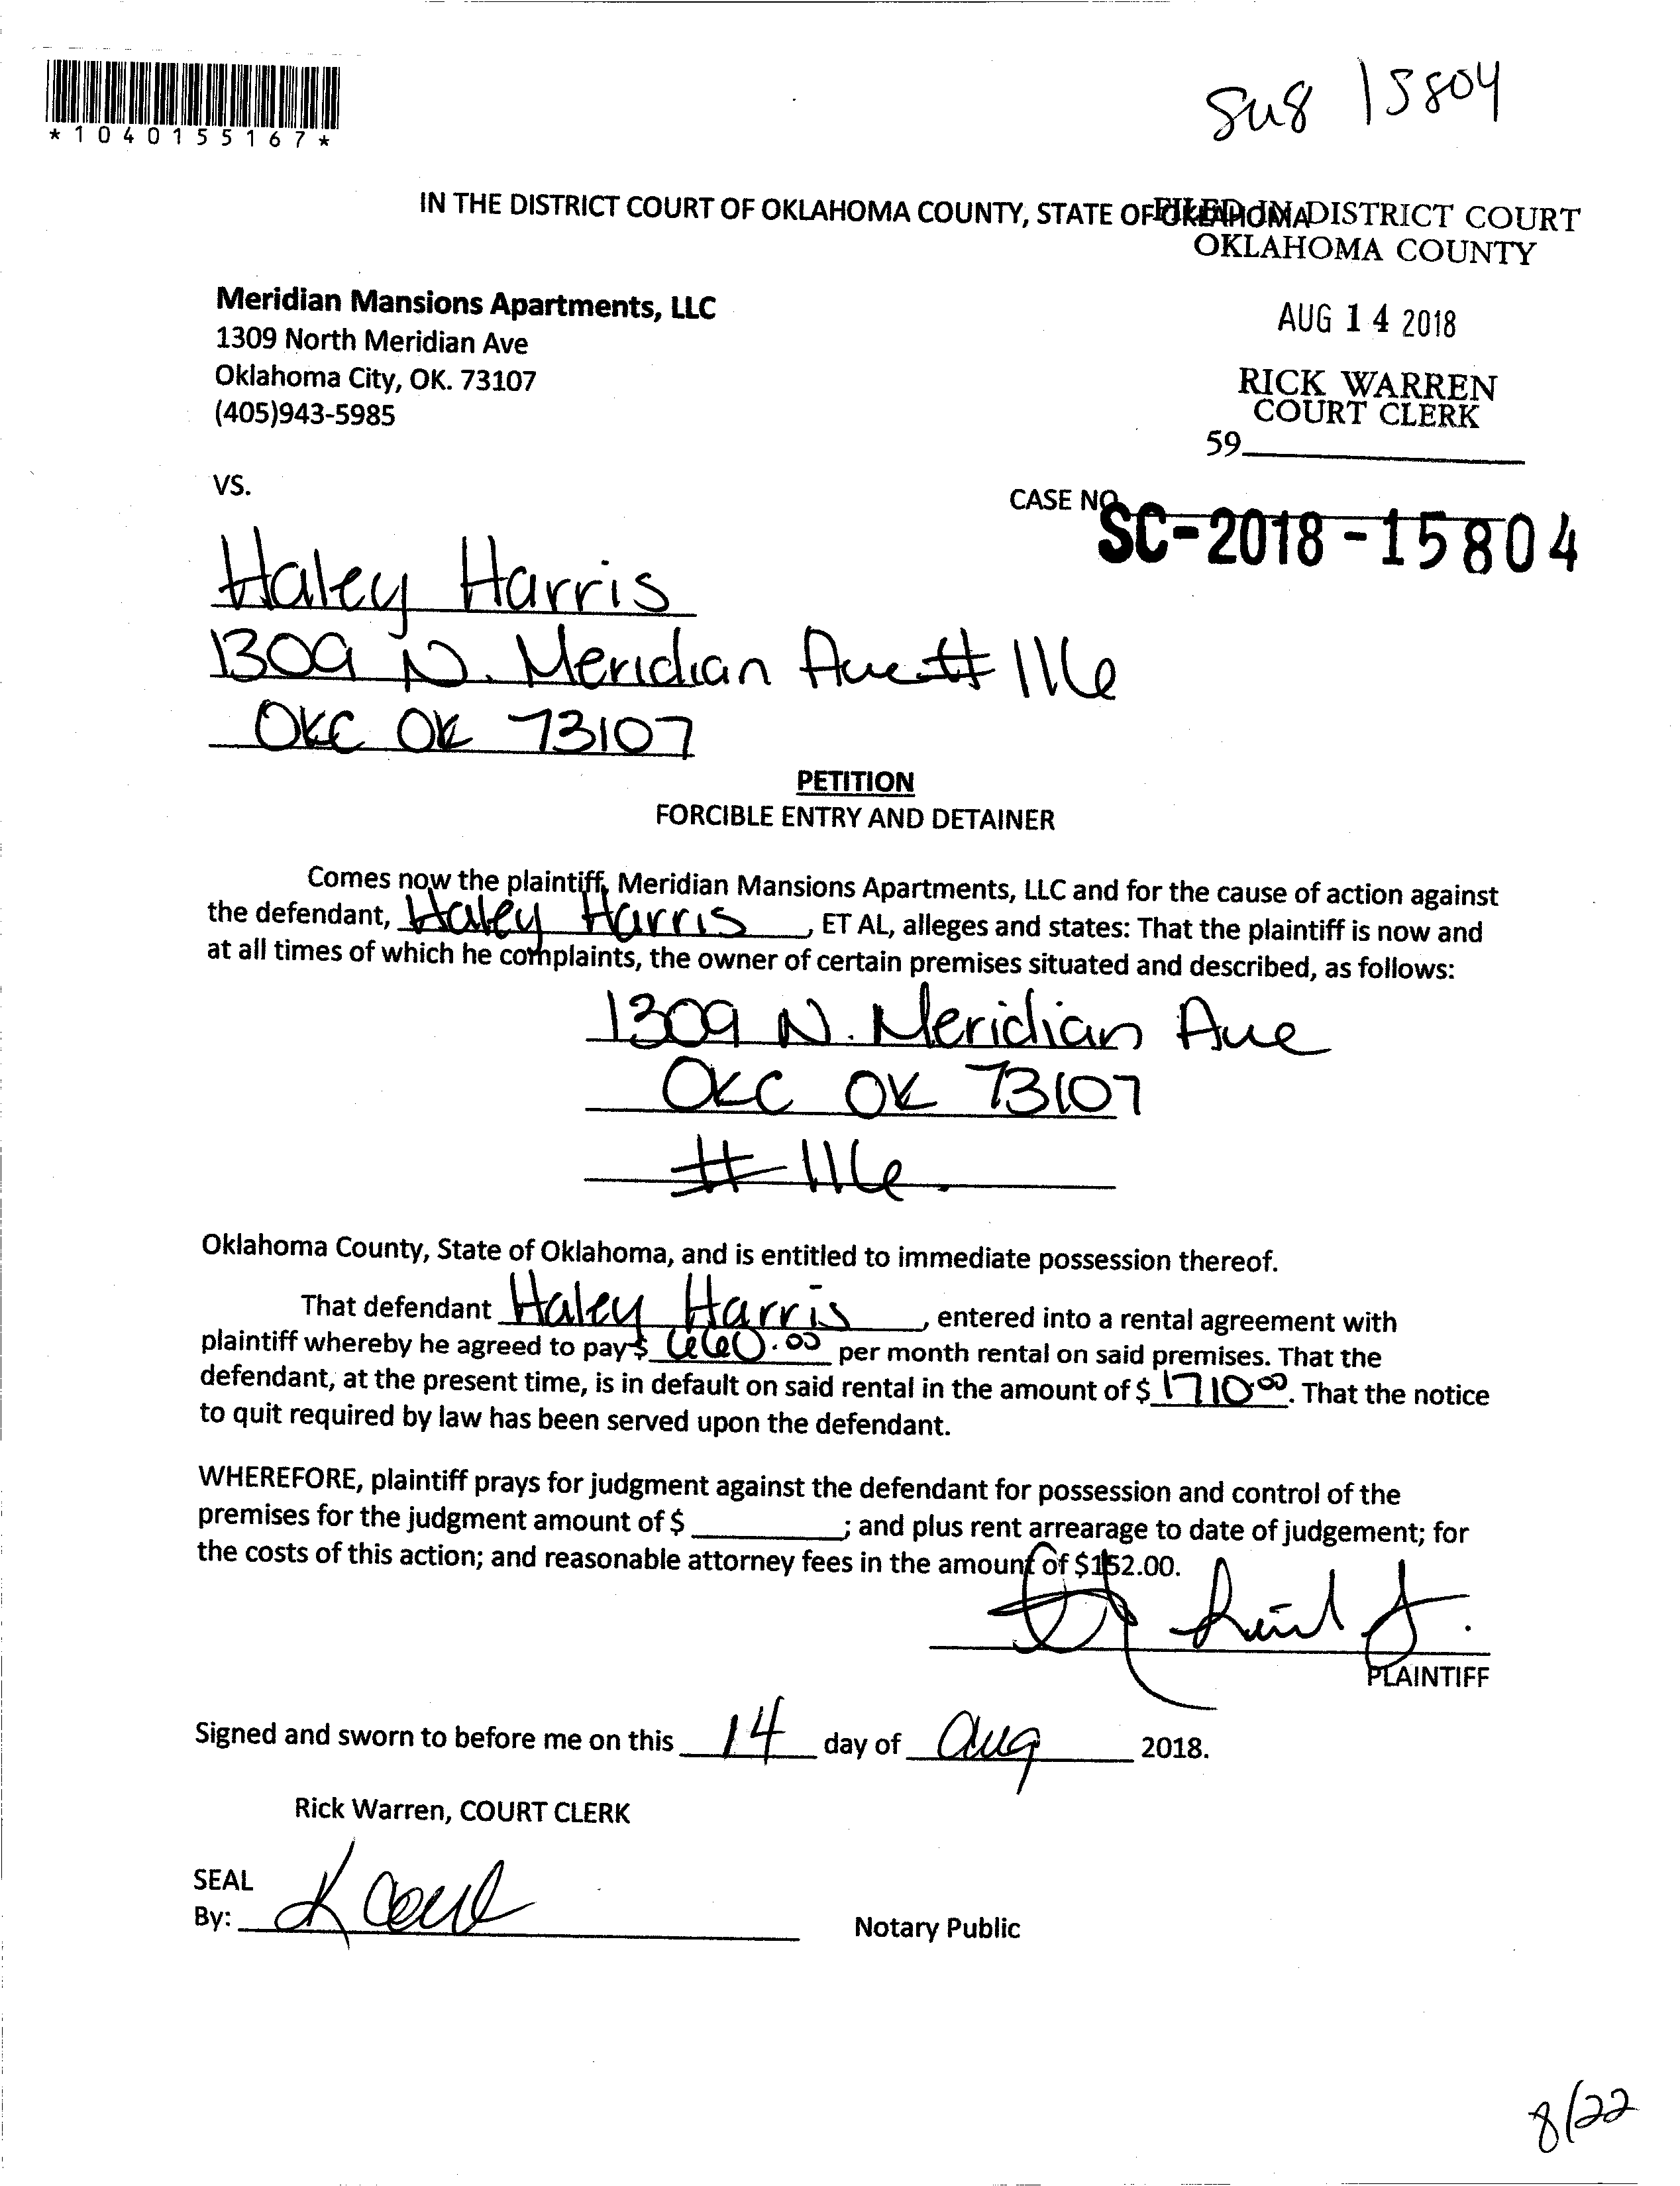 *1040155167*
15804
IN THE DISTRICT COURT OF OKLAHOMA COUNTY, STATE OF OKLAHOMA
FILED IN DISTRICT COURT
OKLAHOMA COUNTY
Meridian Mansions Apartments, LLC
1309 North Meridian Ave
Oklahoma City, OK. 73107
(405)943-5985
AUG 14 2018
RICK WARREN
COURT CLERK
59
VS.
CASE NO
SC-2018-15804
Haley Harris
1309 N. Meridian Ave # 116
OKC OK 73107
PETITION
FORCIBLE ENTRY AND DETAINER
Comes now the plaintiff, Meridian Mansions Apartments, LLC and for the cause of action against
the defendant, Haley Harris, ET AL, alleges and states: That the plaintiff is now and
at all times of which he complaints, the owner of certain premises situated and described, as follows:
1309 N. Meridian Ave
OKC OK 73107
# 116.
Oklahoma County, State of Oklahoma, and is entitled to immediate possession thereof.
That defendant Haley Harris, entered into a rental agreement with
plaintiff whereby he agreed to pay $ 660.00 per month rental on said premises. That the
defendant, at the present time, is in default on said rental in the amount of $ 1710.00. That the notice
to quit required by law has been served upon the defendant.
WHEREFORE, plaintiff prays for judgment against the defendant for possession and control of the
premises for the judgment amount of $ ; and plus rent arrearage to date of judgement; for
the costs of this action; and reasonable attorney fees in the amount of $152.00.
PLAINTIFF
Signed and sworn to before me on this 14 day of Aug 2018.
Rick Warren, COURT CLERK
SEAL
By:
Notary Public
8/22